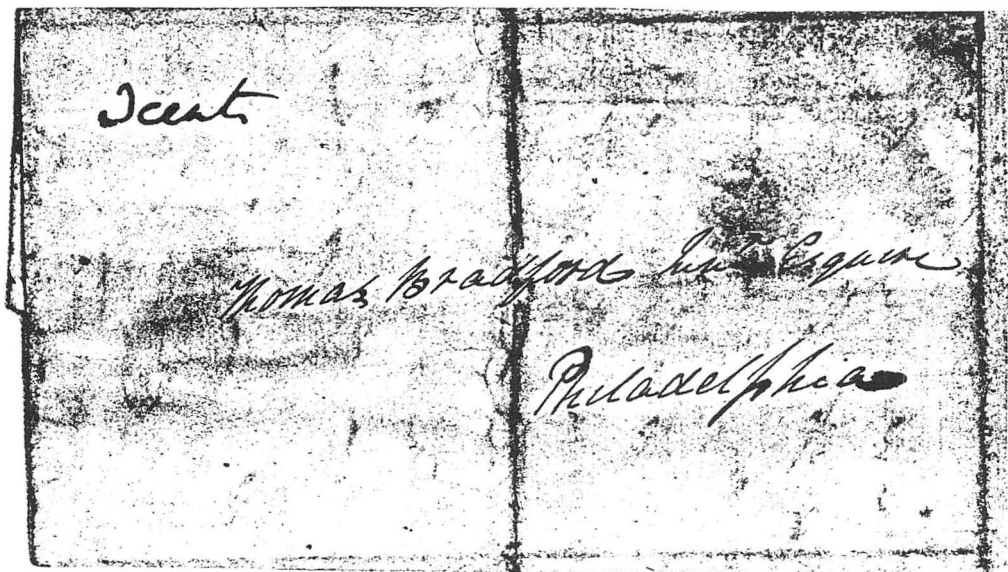 cents
Thomas Bradford Junr Esquire
Philadelphia